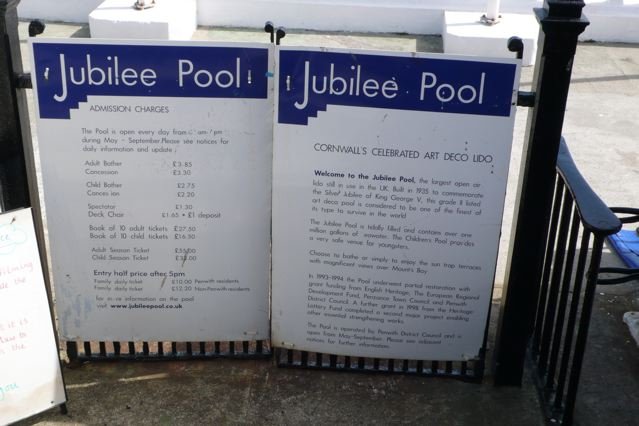 Jubilee Pool
ADMISSION CHARGES
The Pool is open every day from
during May - September. Please see notices for
daily information and update
Adult Bather £3.85
Concession £3.30
Child Bather £2.75
Concession £2.20
Spectator £1.30
Deck Chair £1.65 + £1 deposit
Book of 10 adult tickets £27.50
Book of 10 child tickets £16.50
Adult Season Ticket £55.00
Child Season Ticket
Entry half price after 5pm
Family daily ticket £10.00 Penwith residents
Family daily ticket £12.20 Non-Penwith residents
for more information on the pool
visit www.jubileepool.co.uk
Jubilee Pool
CORNWALL'S CELEBRATED ART DECO LIDO
Welcome to the Jubilee Pool, the largest open air
lido still in use in the UK. Built in 1935 to commemorate
the Silver Jubilee of King George V, this grade II listed
art deco pool is considered to be one of the finest of
its type to survive in the world
The Jubilee Pool is tidally filled and contains over one
million gallons of seawater. The Children's Pool provides
a very safe venue for youngsters.
Choose to bathe or simply to enjoy the sun trap terraces
with magnificent views over Mount's Bay
In 1993-1994 the Pool underwent partial restoration with
grant funding from English Heritage, The European Regional
Development Fund, Penzance Town Council and Penwith
District Council. A further grant in 1998 from the Heritage
Lottery Fund completed a second major project enabling
other essential strengthening works.
The Pool is operated by Penwith District Council and is
open from May-September. Please see adjacent
notices for further information.
is the
you